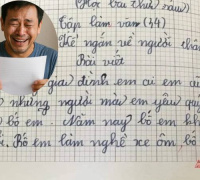 (Học bài thứ sáu)
Tập làm văn (44)
Kể ngắn về người thân
Bài viết
gia đình em có em
những người mà em yêu quý
bố em. Năm nay bố em
Bố em làm nghề xe ôm, bố